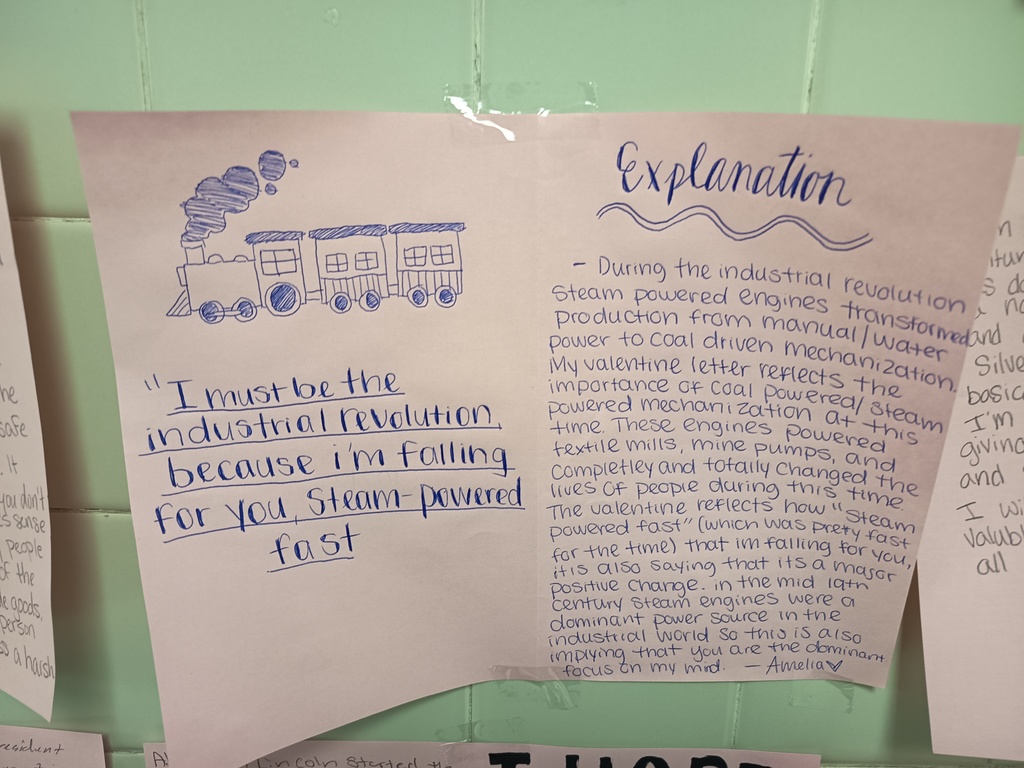 "I must be the
industrial revolution
because i'm falling
for you, steam-powered
fast
Explanation
- During the industrial revolution
steam powered engines transformed
production from manual/water
power to coal driven mechanization.
My valentine letter reflects the
importance of coal powered/steam
powered mechanization at this
time. These engines powered
textile mills, mine pumps, and
completley and totally changed the
lives of people during this time.
The valentine reflects how "steam
powered fast" (which was prety fast
for the time) that im falling for you,
it is also saying that its a major
positive change. in the mid 19th
century steam engines were a
dominant power source in the
industrial world so this is also
implying that you are the dominant
focus on my mid. - Amelia
he
safe
. It
you don't
sense
people
of the
goods,
person
a harsh
and
Silve
basic
I'm
giving
and
I wi
valubl
all
resident
Lincoln started the